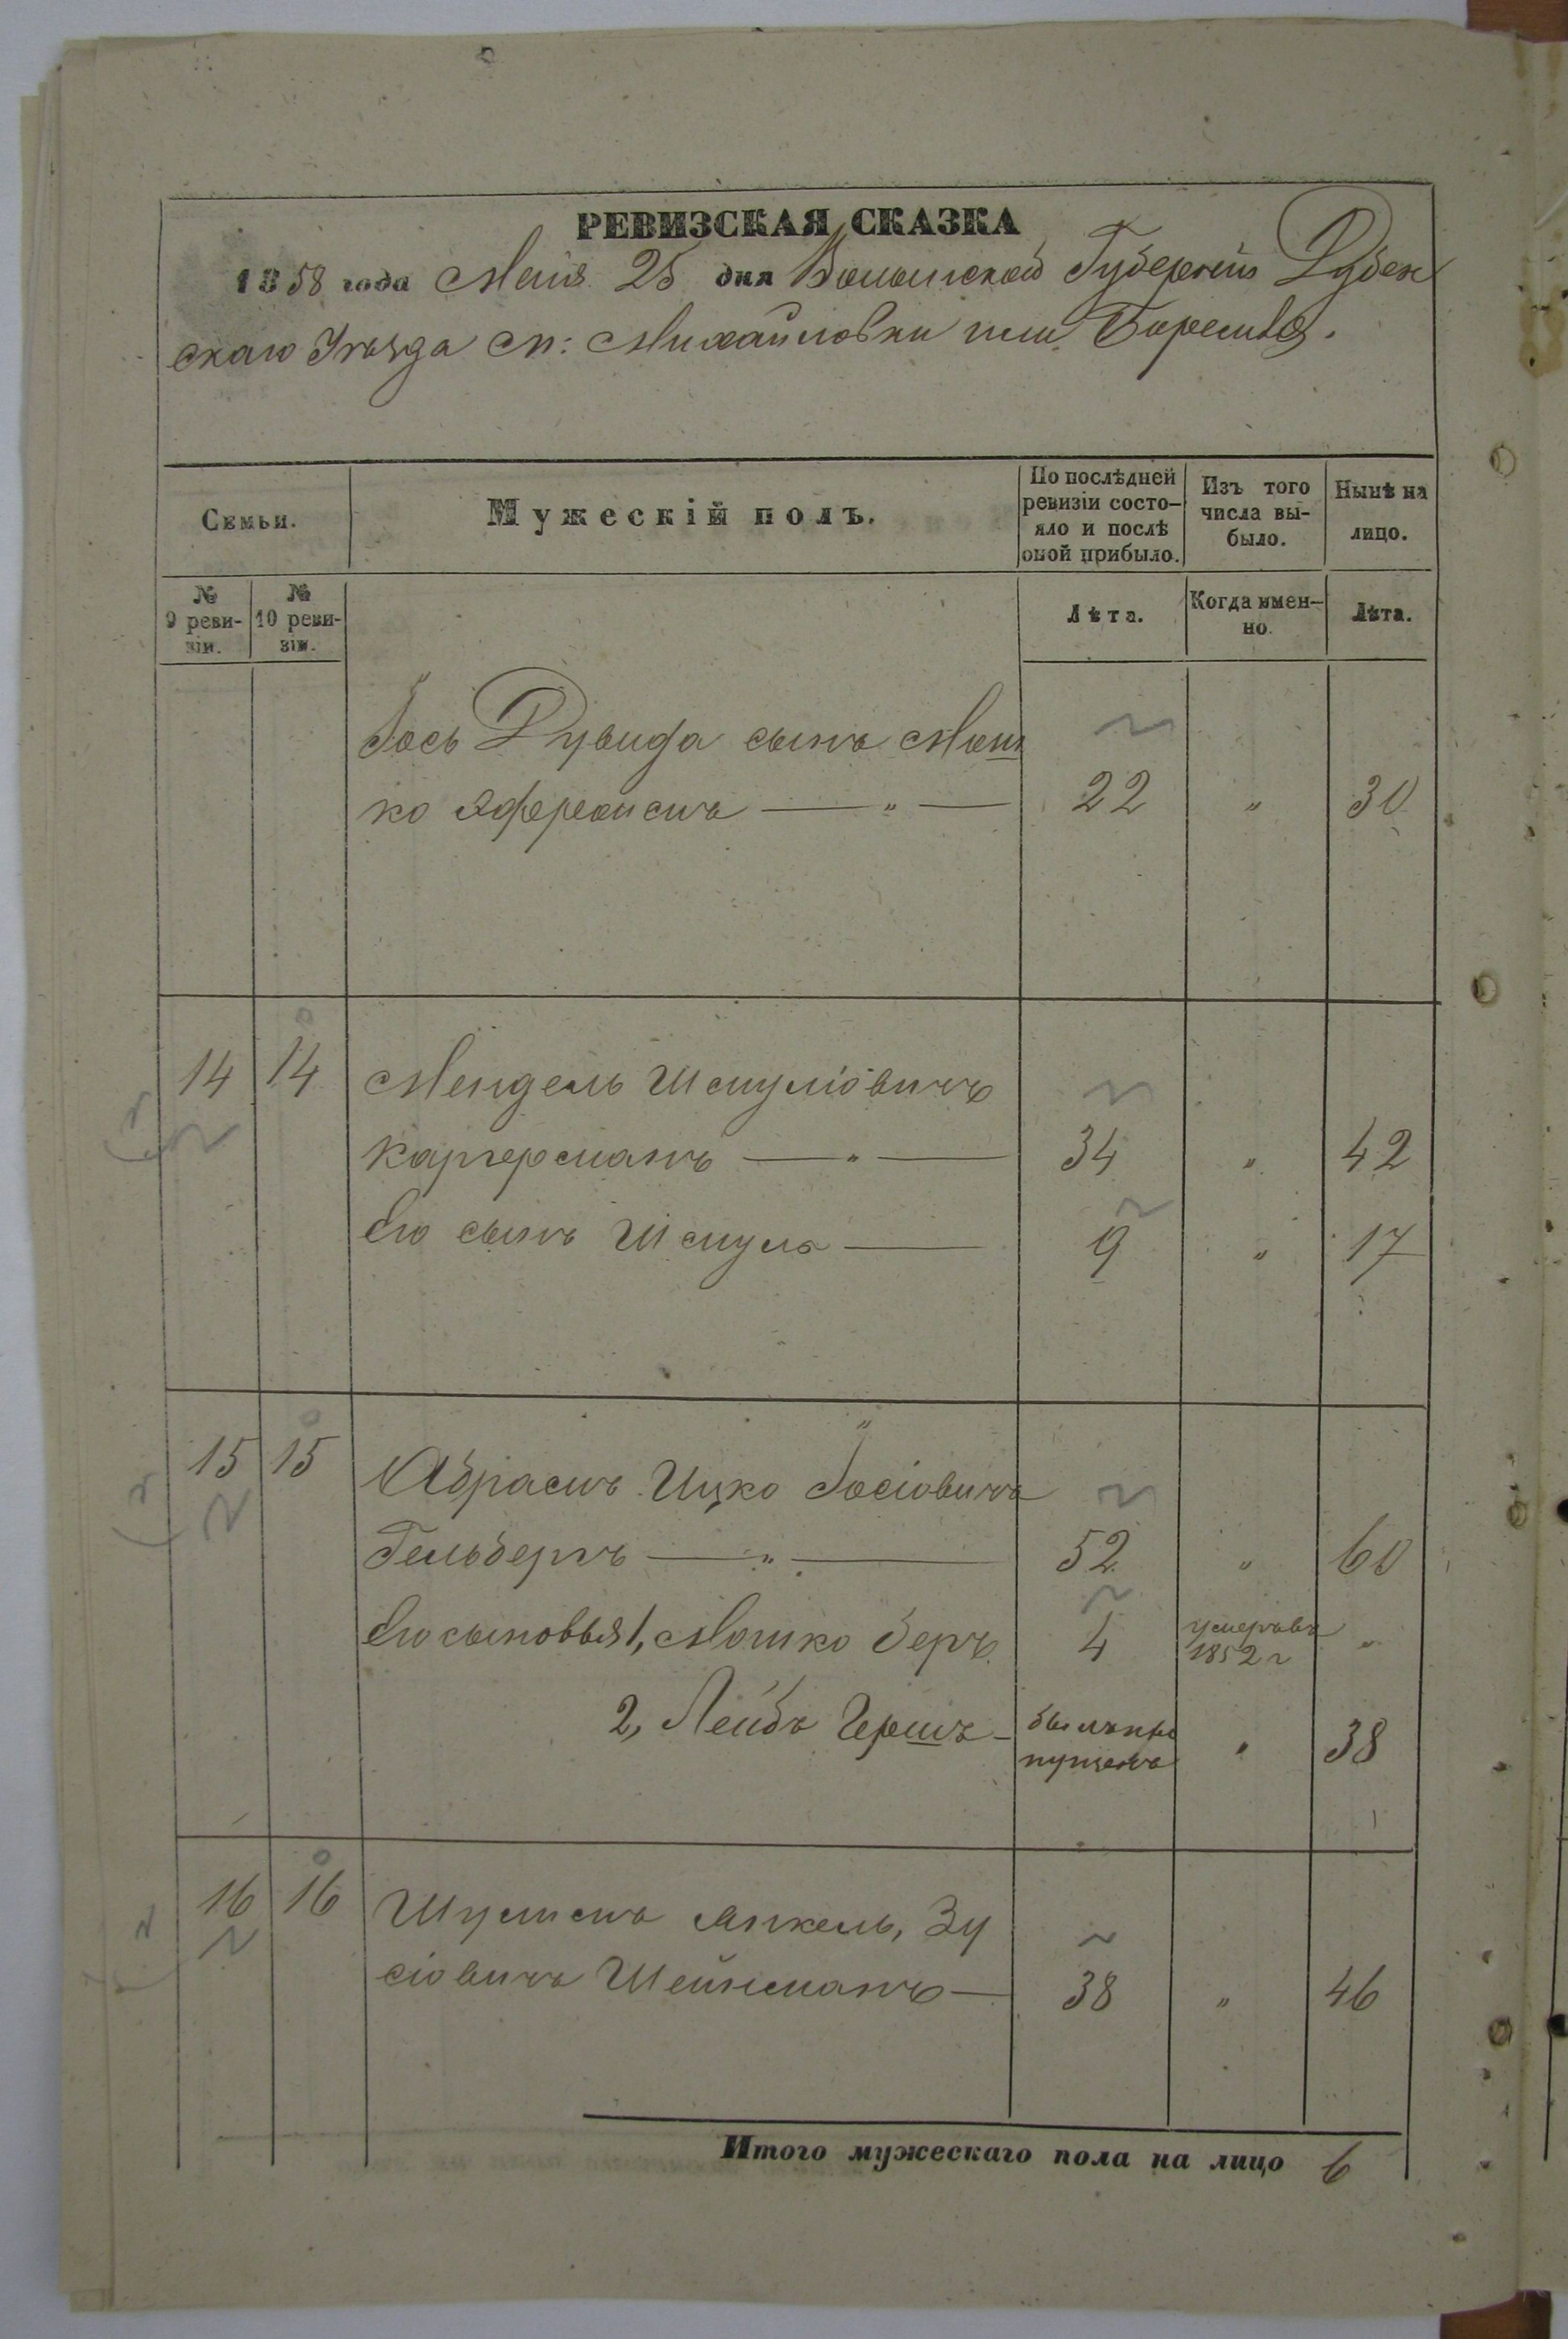 РЕВИЗСКАЯ СКАЗКА
1858 года Маія 25 дня Волынской Губерніи Дубен
скаго Уѣзда м: Михайловки или Берестѣ.
Семьи.
Мужескій полъ.
По послѣдней
ревизіи состо-
яло и послѣ
оной прибыло.
Изъ того
числа вы-
было.
Нынѣ на
лицо.
№
9 реви-
зіи.
№
10 реви-
зіи.
Лѣта.
Когда имен-
но.
Лѣта.
Іось Дувида сынъ Мош
ко 22 " 30
14 14 Мендель Шмуліовичъ
Каргерманъ — " — 34 " 42
Его сынъ Шмуль — 9 " 17
15 15 Абрамъ Ицко Іосіовичъ
Гельбергъ — " — 52 " 60
Его сыновья 1, Мошко Беръ 4 умеръ въ 1852 г "
2, Лейба Гершъ - былъ про
пущенъ " 38
16 16 Шулимъ Янкель, Зу
сіовичъ Шейнманъ — 38 " 46
Итого мужескаго пола на лицо 6